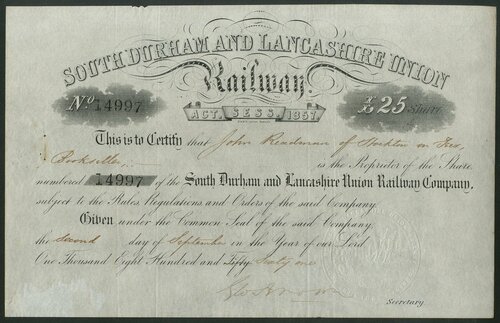 SOUTH DURHAM AND LANCASHIRE UNION
Railway.
No 14997
ACT, SESS. 1857
£25 Share
This is to Certify that John Readman of Stockton on Tees,
Bookseller, is the Proprietor of the Share
numbered 14997 of the South Durham and Lancashire Union Railway Company,
subject to the Rules, Regulations and Orders of the said Company.
Given under the Common Seal of the said Company,
the Second day of September in the Year of our Lord
One Thousand Eight Hundred and Fifty Sixty one
Secretary.